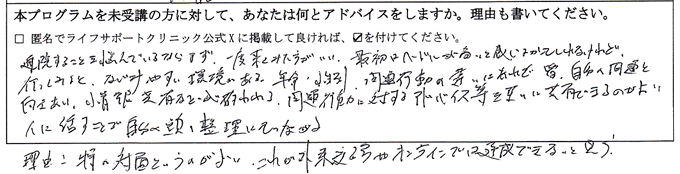 本プログラムを未受講の方に対して、あなたは何とアドバイスをしますか。理由も書いてください。
□ 匿名でライフサポートクリニック公式Xに掲載して良ければ、☑を付けてください。
通院することを悩んでいるならまず、一度来た方がいい、最初はハードルが高いと感じるかもしれないけれど、
行ってみると、なじみやすい環境がある。年令・性別、問題行動の違いはあれど皆、自分の問題と
向きあい、 問題行動に対するアドバイス等を互いに共有できるのがよい
人に話すことで自分の頭の整理にもつながる
理由:特に対面というのがよい、これが外来 オンラインでは達成できないと思う!